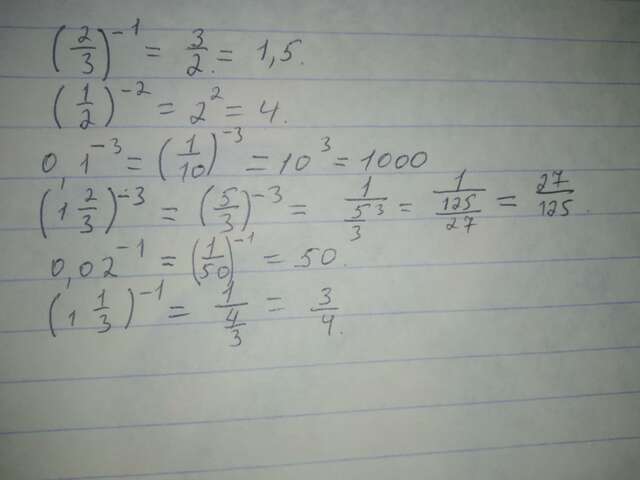 (2/3)^-1 = 3/2 = 1,5.
(1/2)^-2 = 2^2 = 4.
0,1^-3 = (1/10)^-3 = 10^3 = 1000
(1 2/3)^-3 = (5/3)^-3 = 1/(5/3^3) = 1/(125/27) = 27/125.
0,02^-1 = (1/50)^-1 = 50.
(1 1/3)^-1 = 1/(4/3) = 3/4.